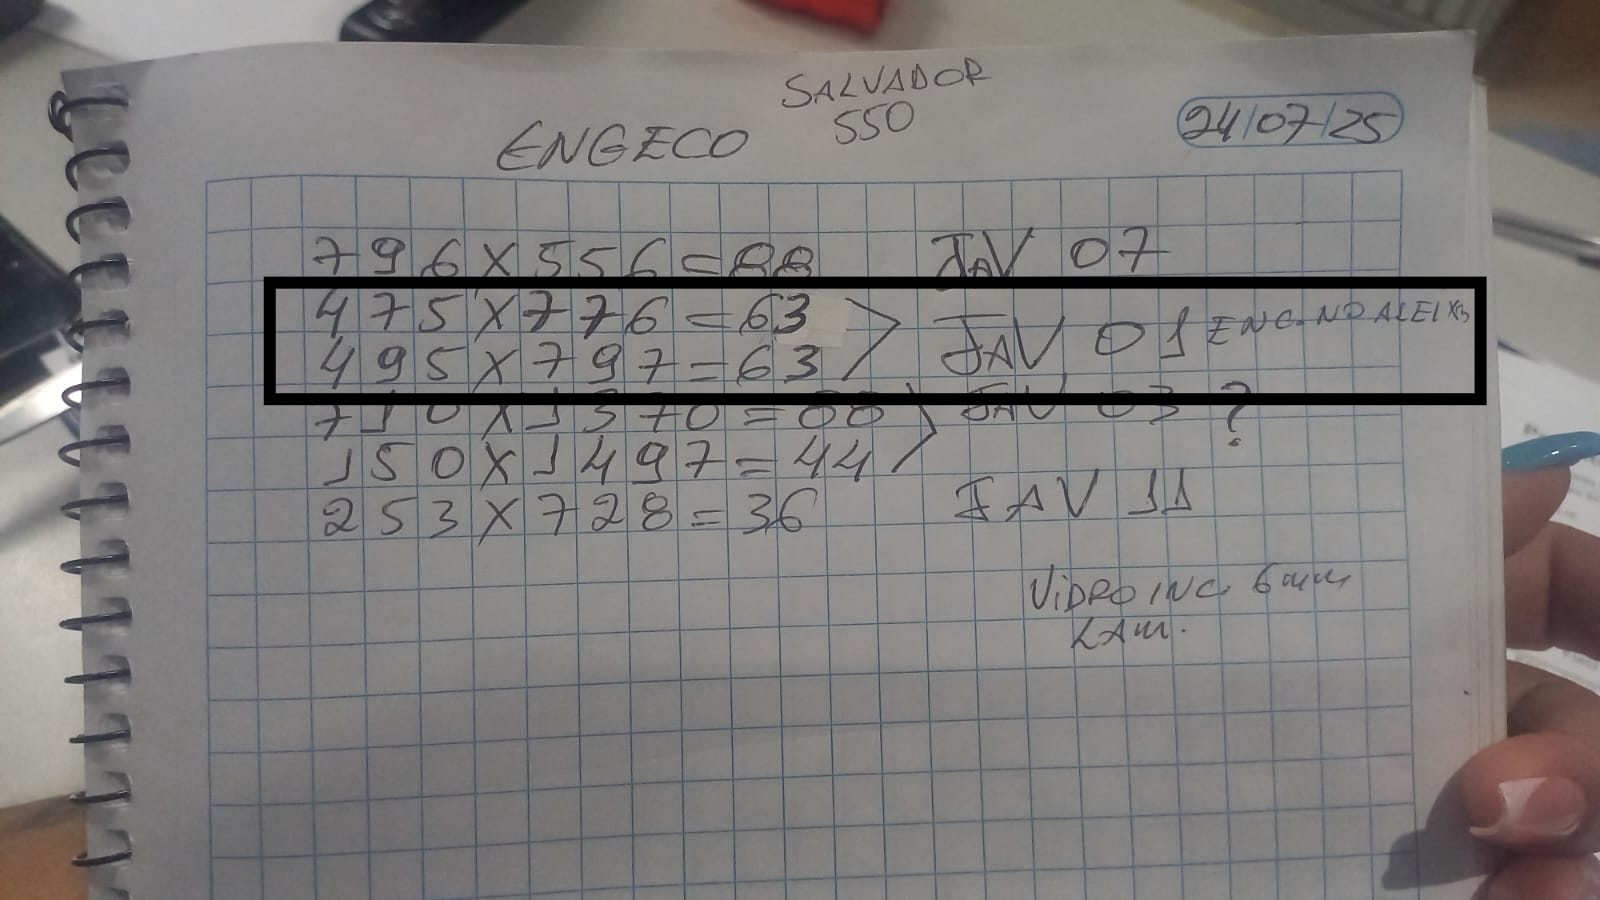 SALVADOR
550
ENGECO
24/07/25
796X556=88 JAV 07
475X776=63
495X797=63
JAV 01 ENC. NO ALEIXO
710X1370=88
JAV 03 ?
150X1497=44
253X728=36 JAV 11
VIDRO INC. 6mm
LAM.